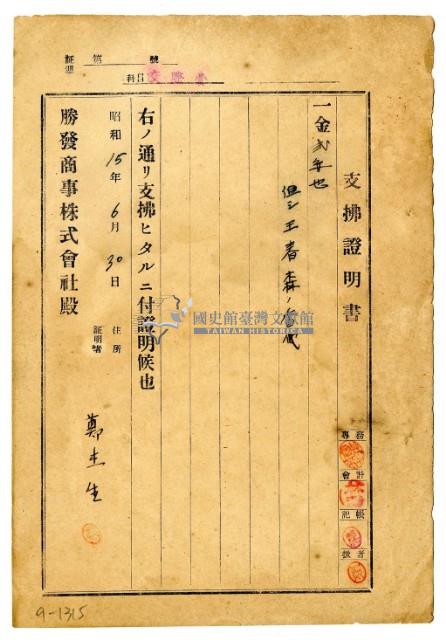 証憑 第 號
科目
支拂證明書
一金貳
但シ王春森ノ
右ノ通リ支拂ヒタルニ付證明候也
昭和15年6月30日
住所
証明者
鄭
生
勝發商事株式會社殿
專務
會計
記帳
扱者
國史館臺灣文獻館
TAIWAN HISTORICA
9-1315